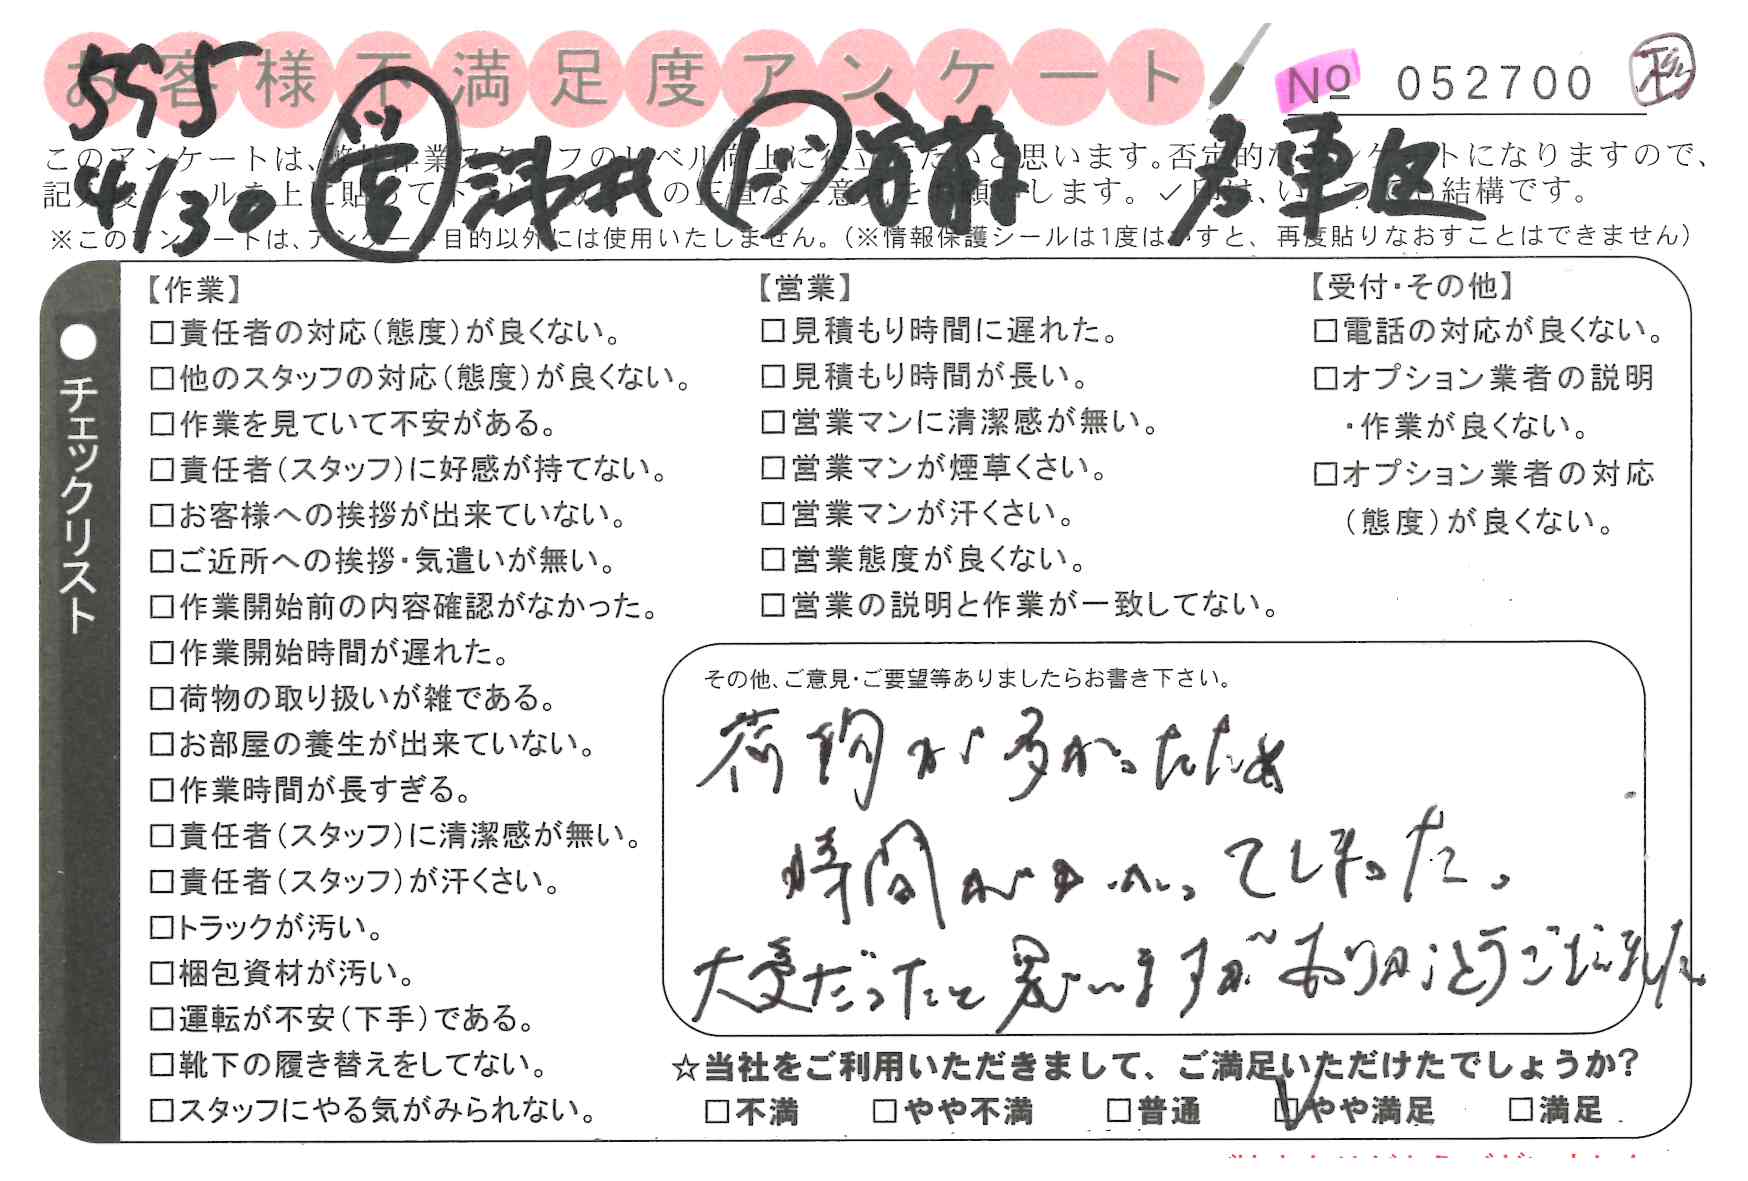 お客様不満足度アンケート
No 052700
575
4/30 営 浅井 ド 前 名東区
このアンケートは、弊社作業スタッフのレベル向上に役立てたいと思います。否定的なアンケートになりますので、
記入後シールを上に貼って下さい。お客様の正直なご意見をお願いします。✓印は、いくつでも結構です。
※このアンケートは、アンケート目的以外には使用いたしません。（※情報保護シールは1度はがすと、再度貼りなおすことはできません）
●チェックリスト
【作業】
□責任者の対応（態度）が良くない。
□他のスタッフの対応（態度）が良くない。
□作業を見ていて不安がある。
□責任者（スタッフ）に好感が持てない。
□お客様への挨拶が出来ていない。
□ご近所への挨拶・気遣いが無い。
□作業開始前の内容確認がなかった。
□作業開始時間が遅れた。
□荷物の取り扱いが雑である。
□お部屋の養生が出来ていない。
□作業時間が長すぎる。
□責任者（スタッフ）に清潔感が無い。
□責任者（スタッフ）が汗くさい。
□トラックが汚い。
□梱包資材が汚い。
□運転が不安（下手）である。
□靴下の履き替えをしてない。
□スタッフにやる気がみられない。
【営業】
□見積もり時間に遅れた。
□見積もり時間が長い。
□営業マンに清潔感が無い。
□営業マンが煙草くさい。
□営業マンが汗くさい。
□営業態度が良くない。
□営業の説明と作業が一致してない。
【受付・その他】
□電話の対応が良くない。
□オプション業者の説明
・作業が良くない。
□オプション業者の対応
（態度）が良くない。
その他、ご意見・ご要望等ありましたらお書き下さい。
荷物が多かったため
時間がかかってしまった。
大変だったと思いますが ありがとうございました。
☆当社をご利用いただきまして、ご満足いただけたでしょうか？
□不満 □やや不満 □普通 ☑やや満足 □満足